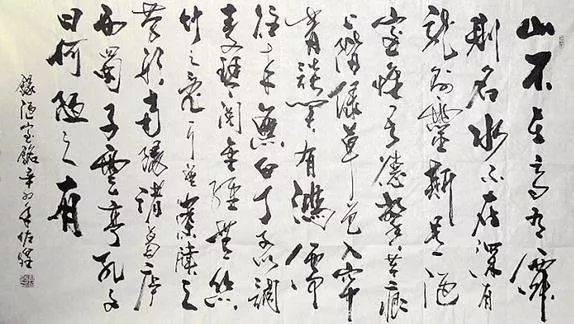 山不在高有僊
則名水不在深有
龍則靈斯是陋
室惟吾德馨苔痕
上階绿草色入帘
青談笑有鴻儒
往来無白丁可以調
素琴閲金經無絲
竹之亂耳無案牘之
勞形南陽諸葛廬
西蜀子雲亭孔子
曰何陋之有
錄陋室銘辛卯年